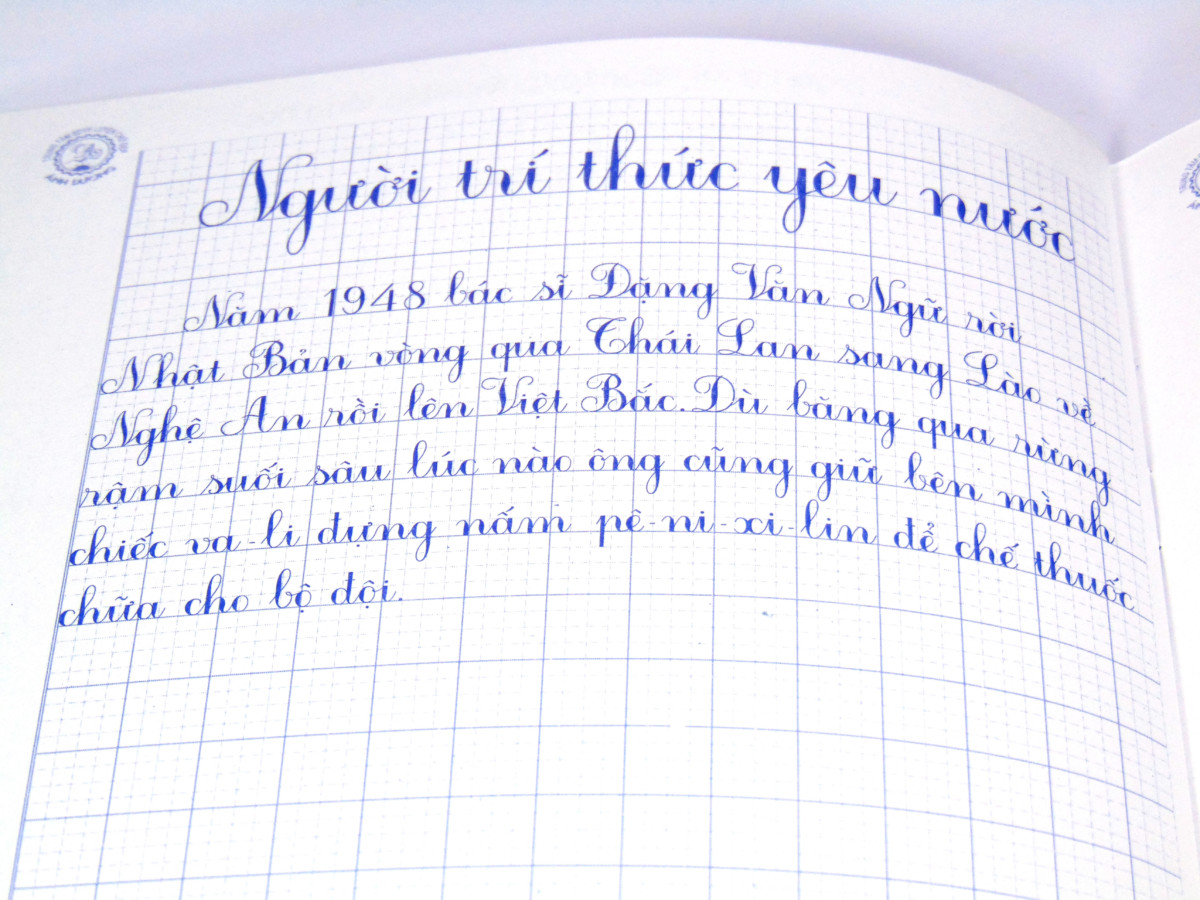 ÁNH DƯƠNG
Người trí thức yêu nước
Năm 1948 bác sĩ Đặng Văn Ngữ rời
Nhật Bản vòng qua Thái Lan sang Lào về
Nghệ An rồi lên Việt Bắc. Dù băng qua rừng
rậm suối sâu lúc nào ông cũng giữ bên mình
chiếc va-li đựng nấm pê-ni-xi-lin để chế thuốc
chữa cho bộ đội.